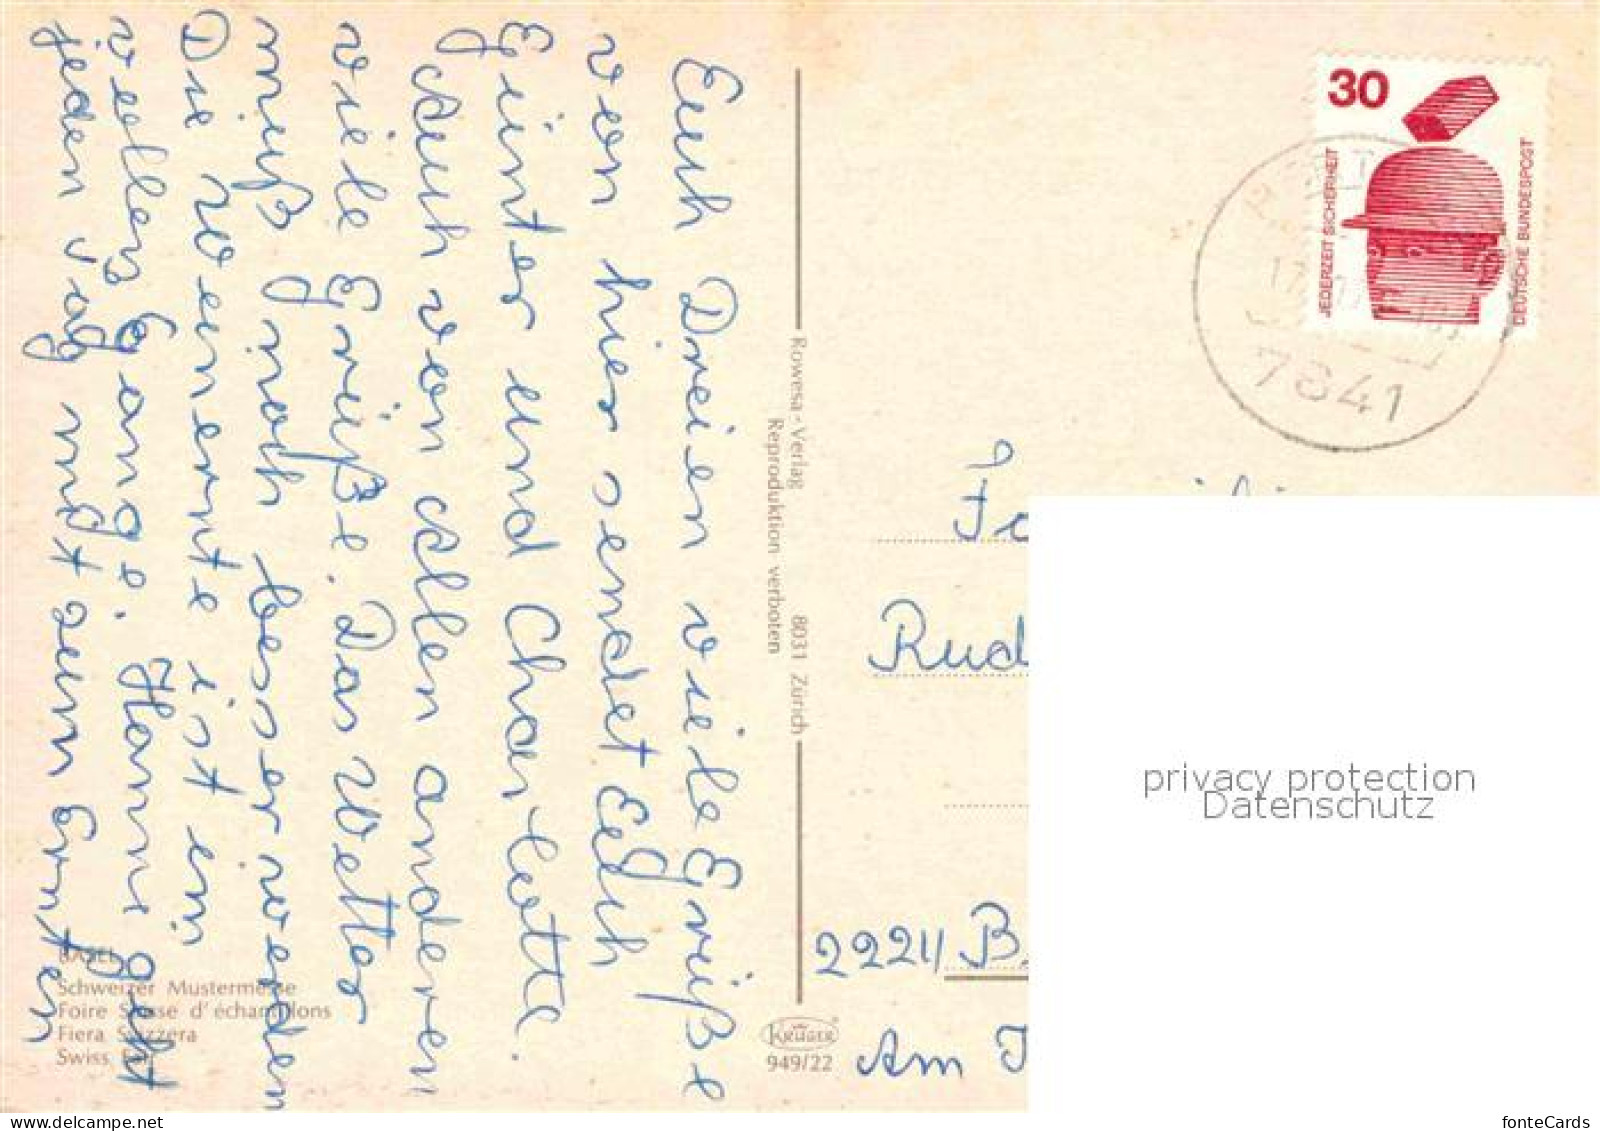 Euch Dreien viele Grüße
von hier sendet Euch
Günter und Charlotte.
Auch von Allen anderen
viele Grüße. Das Wetter
muß noch besser werden
Die Weinernte ist in
voller Gange. Hanni geht
jeden Tag mit zum Ernten
BASEL
Schweizer Mustermesse
Foire Suisse d'échantillons
Fiera Svizzera
Swiss Fair
Rowesa-Verlag 8031 Zürich
Reproduktion verboten
KRÜGER
949/22
30
JEDERZEIT SICHERHEIT
DEUTSCHE BUNDESPOST
7841
Rud
2221/ B.
Am
privacy protection
Datenschutz
www.delcampe.net
fonteCards